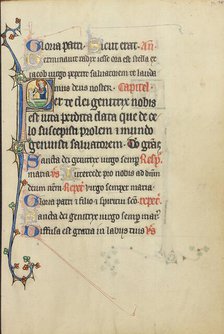 Gloria patri Sicut erat An̄
Germinavit radix iesse orta est stella ex
iacob virgo peperit salvatorem te lauda
mus deus noster Capitel
Per te dei genitrix nobis
est vita perdita data que de ce
lo suscepisti prolem i mundo
genuisti salvatorem Deo grās
Sancta dei genitrix virgo semp Resp
maria vs Intercede pro nobis ad dūm
deum nr̄m Repet virgo semper maria
Gloria patri i filio i spiritui sc̄o repet
Sancta dei genitrix virgo semp mar
Diffusa est gratia in labiis tuis vs